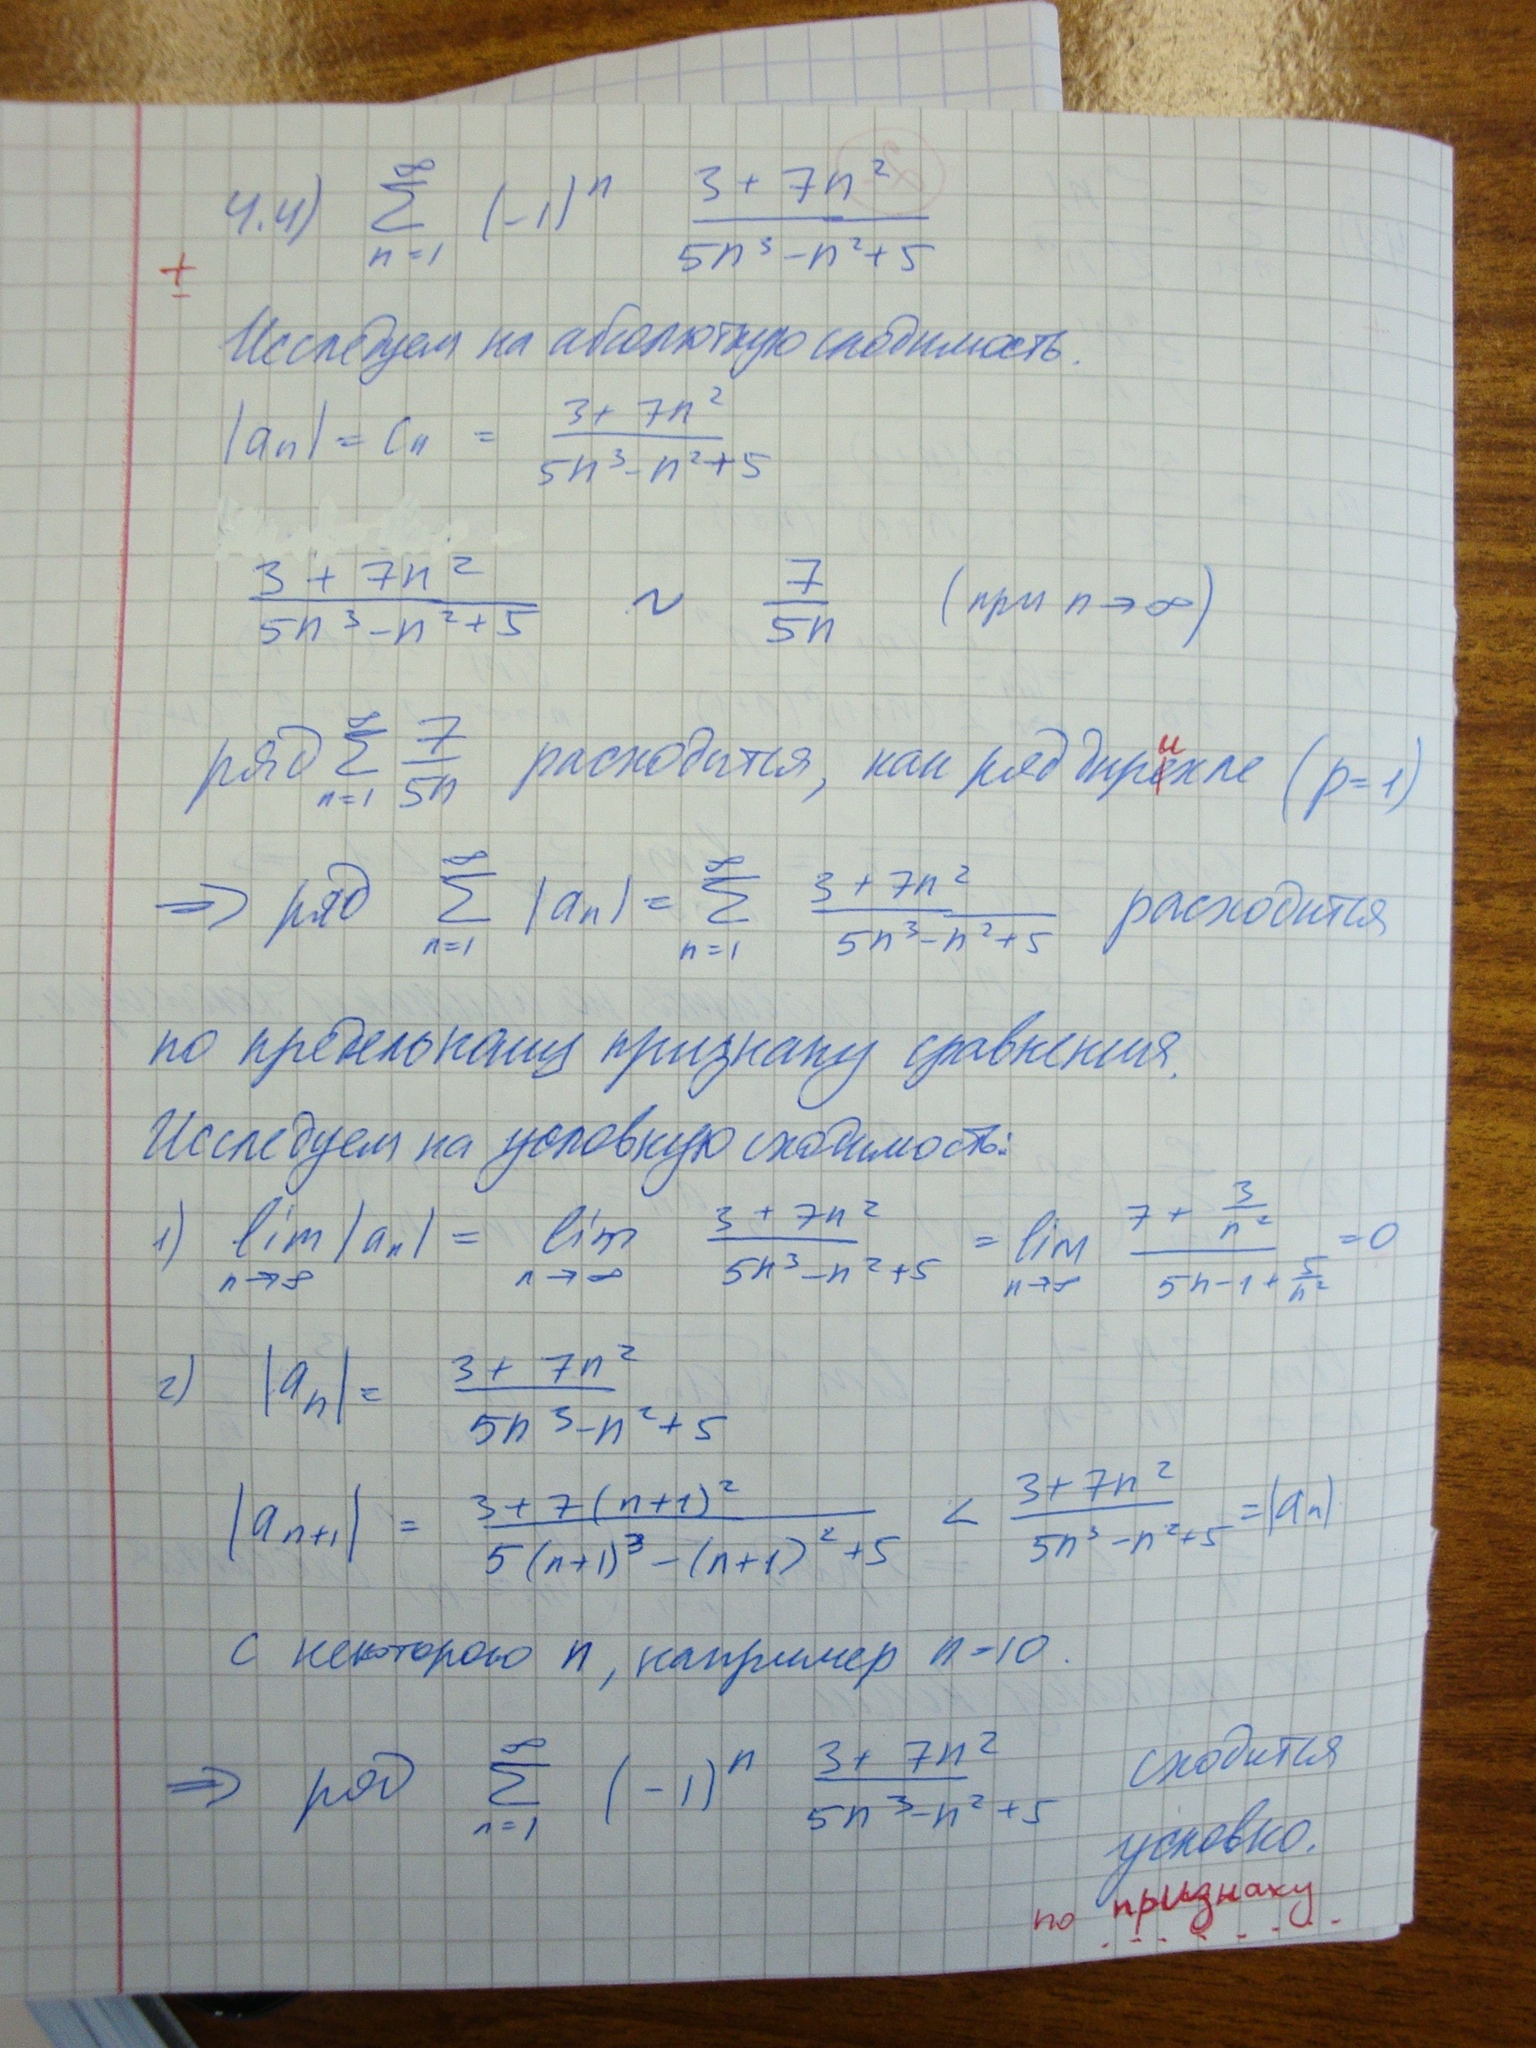 4.4) ∑_{n=1}^{∞} (-1)^n (3 + 7n²)/(5n³ - n² + 5)
±
Исследуем на абсолютную сходимость.
|aₙ| = cₙ = (3 + 7n²)/(5n³ - n² + 5)
(3 + 7n²)/(5n³ - n² + 5) ~ 7/(5n) (при n → ∞)
ряд ∑_{n=1}^{∞} 7/(5n) расходится, как ряд дирихле (p = 1)
⇒ ряд ∑_{n=1}^{∞} |aₙ| = ∑_{n=1}^{∞} (3 + 7n²)/(5n³ - n² + 5) расходится
по предельному признаку сравнения.
Исследуем на условную сходимость:
1) lim_{n→∞} |aₙ| = lim_{n→∞} (3 + 7n²)/(5n³ - n² + 5) = lim_{n→∞} (7 + 3/n²)/(5n - 1 + 5/n²) = 0
2) |aₙ| = (3 + 7n²)/(5n³ - n² + 5)
|aₙ₊₁| = (3 + 7(n+1)²)/(5(n+1)³ - (n+1)² + 5) < (3 + 7n²)/(5n³ - n² + 5) = |aₙ|
с некоторого n, например n = 10.
⇒ ряд ∑_{n=1}^{∞} (-1)^n (3 + 7n²)/(5n³ - n² + 5) сходится
условно.
по признаку